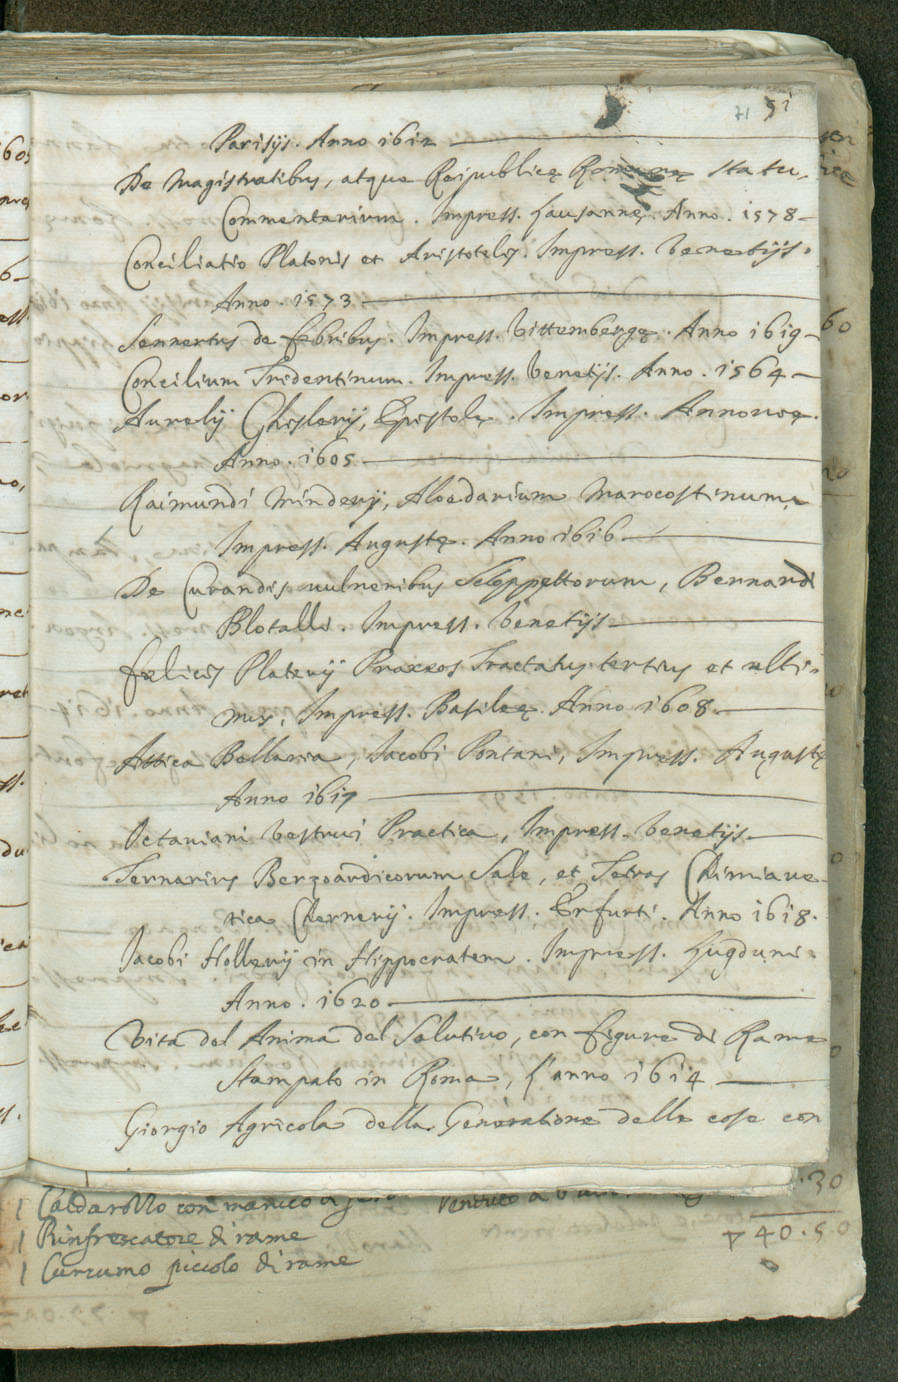 71 51
Parisijs. Anno 1612
De Magistratibus, atque Reipublicę Romanę statu,
Commentarium. Impress. Lausannę. Anno. 1578
Conciliatio Platonis et Aristotelis. Impress. Venetijs.
Anno. 1573
Sennertus de febribus. Impress. Vittembergę. Anno 1619
Concilium Tridentinum. Impress. Venetijs. Anno. 1564
Aurelij Ghislerij, Epistolę. Impress. Annonię.
Anno. 1605
Raimundi Minderij, Aloedarium Marocostinum,
Impress. Augustę. Anno 1616
De Curandis vulneribus Scloppettorum, Bernardi
Blotalli. Impress. Venetijs
felicis Platerij Praxeos Tractatus tertius et ulti-
mus, Impress. Basileę. Anno 1608
Attica Bellaria, Jacobi Pontani, Impress. Augustę
Anno 1617
Octaviani Vestrui Practica, Impress. Venetijs
Ternarius Berzoardicorum Sale, et Tetras Chimiave-
tica Chernerij. Impress. Erfurti. Anno 1618.
Jacobi Hollerij in Hippocratem. Impress. Lugduni.
Anno. 1620
Vita del Anima del Salutivo, con figure di Rame
Stampato in Roma, l'anno 1614
Giorgio Agricola della Generatione delle cose con
1 Caldarozzo con manico
1 Rinfrescatore di rame
1 Curzumo piccolo di rame
.30
40.50